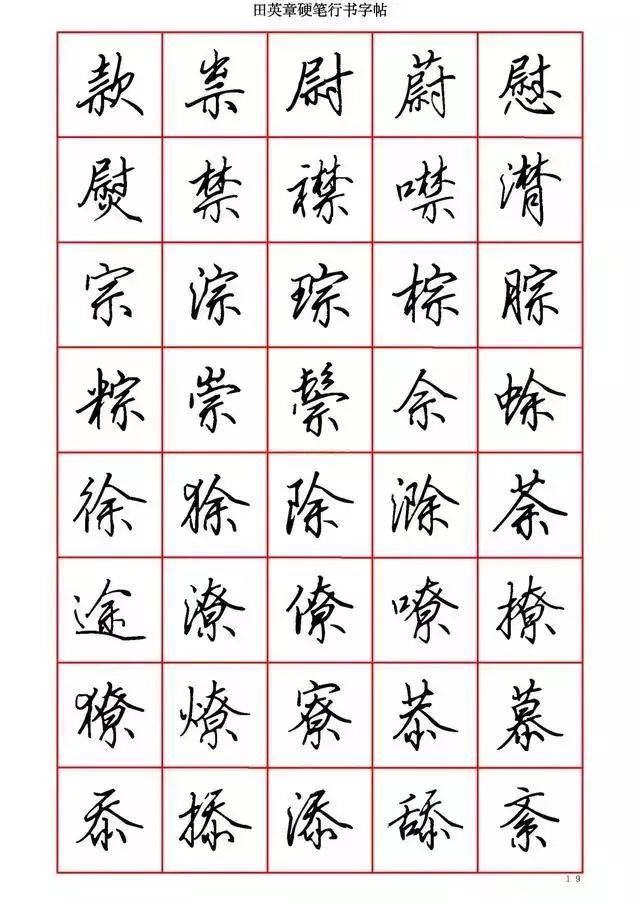 田英章硬笔行书字帖
款 祟 尉 蔚 慰
熨 禁 襟 噤 潸
宗 淙 琮 棕 腙
粽 崇 鬃 余 蜍
徐 狳 除 滁 荼
途 潦 僚 嘹 撩
獠 燎 寮 恭 慕
忝 掭 添 舔 紊
19